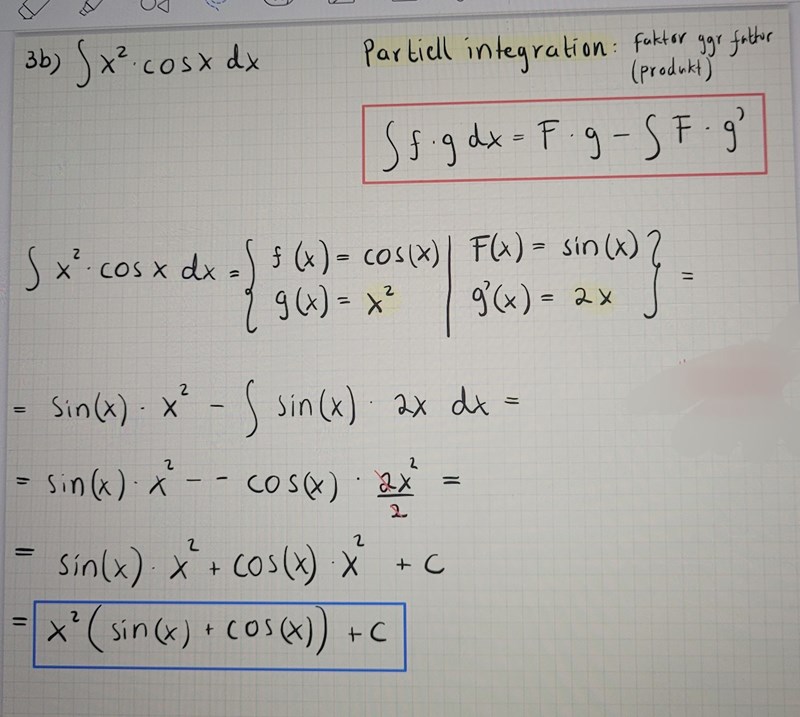 3b) ∫ x² · cosx dx
Partiell integration: faktor ggr faktor
(produkt)
∫ f · g dx = F · g - ∫ F · g'
∫ x² · cos x dx = { f (x) = cos(x) | F(x) = sin(x) } =
g(x) = x² | g'(x) = 2x
= sin(x) · x² - ∫ sin(x) · 2x dx =
= sin(x) · x² - - cos(x) · 2x²/2 =
= sin(x) · x² + cos(x) · x² + C
= x² ( sin(x) + cos(x)) + C